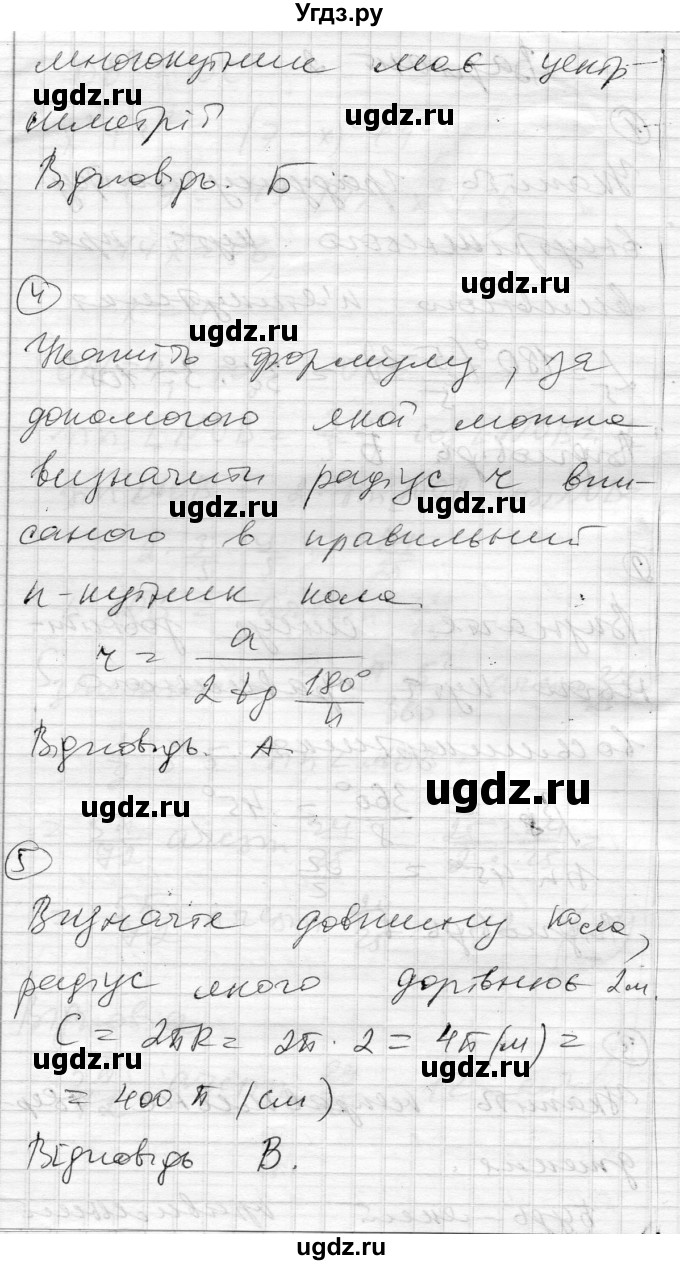 Угдз.ру
многокутник має центр
симетрії
ugdz.ru ugdz.ru
Відповідь. Б
ugdz.ru
4
ugdz.ru
Укажіть формулу, за
допомогою якої можна
визначити радіус r впи-
ugdz.ru ugdz.ru
саного в правильний
n-кутник кола.
r = a / (2 tg 180°/n)
Відповідь. А.
ugdz.ru
ugdz.ru
5
Визначте довжину кола,
радіус якого дорівнює 2м.
C = 2πR = 2π · 2 = 4π (м) =
ugdz.ru ugdz.ru
= 400 π (см).
Відповідь В.
ugdz.ru